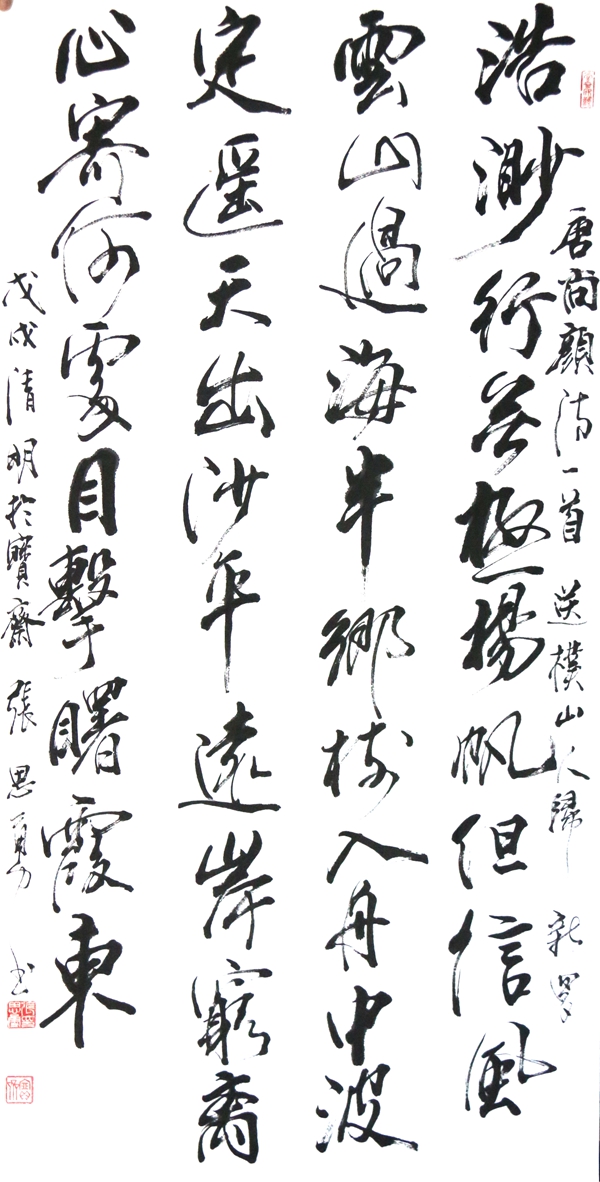 唐尚顔詩一首 送樸山人歸 新羅
浩渺行無極揚帆但信風
雲山過海半鄉樹入舟中波
定遥天出沙平遠岸窮离
心寄何處目擊曙霞東
戊戌清明於寶齋 張思勇 书